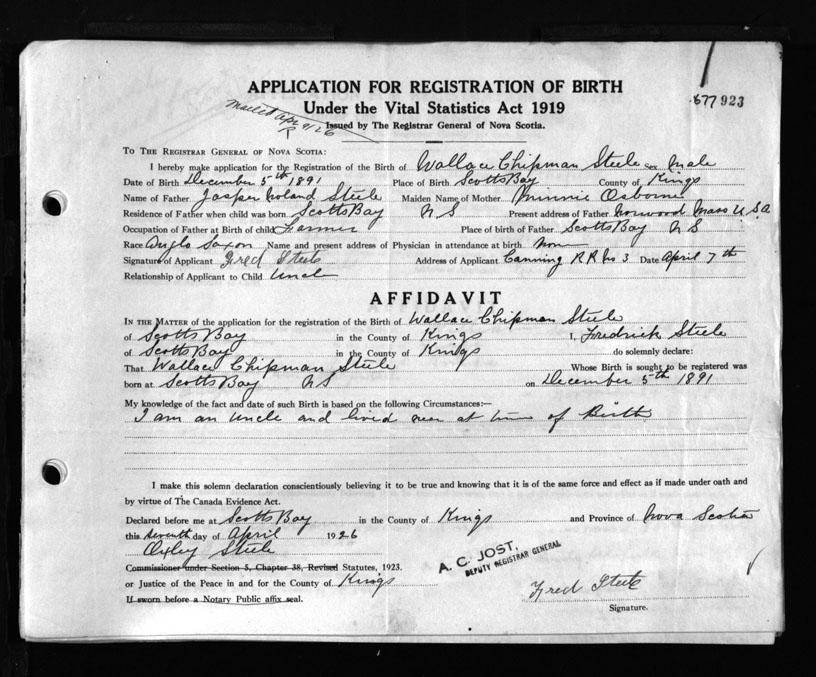 APPLICATION FOR REGISTRATION OF BIRTH
877923
Under the Vital Statistics Act 1919
Mailed Apr 9/26
Issued by The Registrar General of Nova Scotia.
TO THE REGISTRAR GENERAL OF NOVA SCOTIA:
I hereby make application for the Registration of the Birth of Wallace Chipman Steele Sex Male
Date of Birth December 5th 1891 Place of Birth Scotts Bay County of Kings
Name of Father Jasper Noland Steele Maiden Name of Mother Minnie Osborne
Residence of Father when child was born Scotts Bay N S Present address of Father Norwood Mass U.S.A
Occupation of Father at Birth of child Farmer Place of birth of Father Scotts Bay N S
Race Anglo Saxon Name and present address of Physician in attendance at birth Non
Signature of Applicant Fred Steele Address of Applicant Canning R R No 3 Date April 7th
Relationship of Applicant to Child Uncle
AFFIDAVIT
IN THE MATTER of the application for the registration of the Birth of Wallace Chipman Steele
of Scotts Bay in the County of Kings I, Fredrick Steele
of Scotts Bay in the County of Kings do solemnly declare:
That Wallace Chipman Steele Whose Birth is sought to be registered was
born at Scotts Bay N S on December 5th 1891
My knowledge of the fact and date of such Birth is based on the following Circumstances:—
I am an Uncle and lived near at time of Birth
I make this solemn declaration conscientiously believing it to be true and knowing that it is of the same force and effect as if made under oath and
by virtue of The Canada Evidence Act.
Declared before me at Scotts Bay in the County of Kings and Province of Nova Scotia
this seventh day of April 1926
Oxley Steele
Commissioner under Section 5, Chapter 38, Revised Statutes, 1923.
A. C. JOST,
DEPUTY REGISTRAR GENERAL
or Justice of the Peace in and for the County of Kings
Fred Steele
If sworn before a Notary Public affix seal.
Signature.